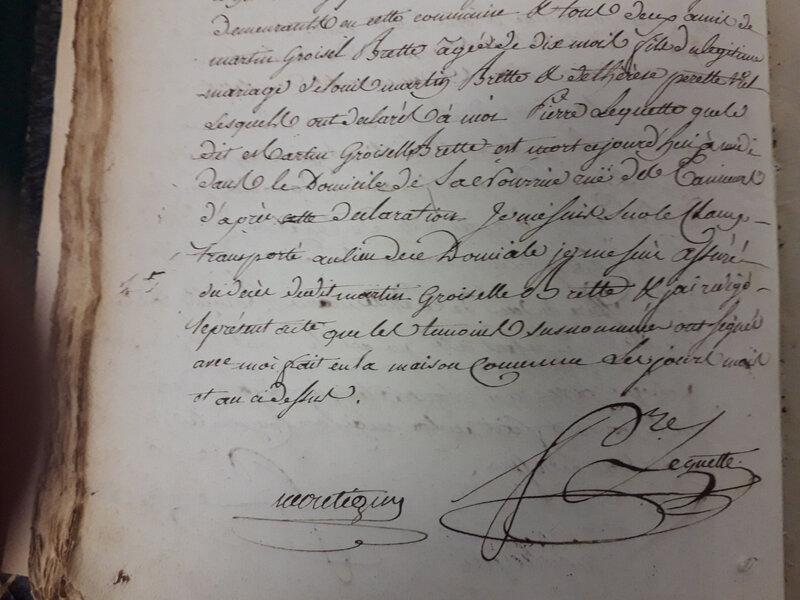 demeurants en cette commune & tous deux amis de
martin Groisel Brette agée de dix mois fils du legitime
mariage de Louis martin Brette & de thérèse perette
Lesquels ont déclarés à moi Pierre Lequette que le
dit Martin Groiselle Brette est mort ce jourd'hui à midi
dans le Domicile de Sa Nourrice ruë des
d'après cette déclaration Je me suis sur le Champ
transporté au lieu de ce Domicile je me suis assuré
du décès dudit martin Groiselle Brette & j'ai rédigé
le présent acte que les temoins susnommés ont signés
avec moi fait en la maison Commune Les jours mois
et an ci dessus.
Pre
Lequette
montegny